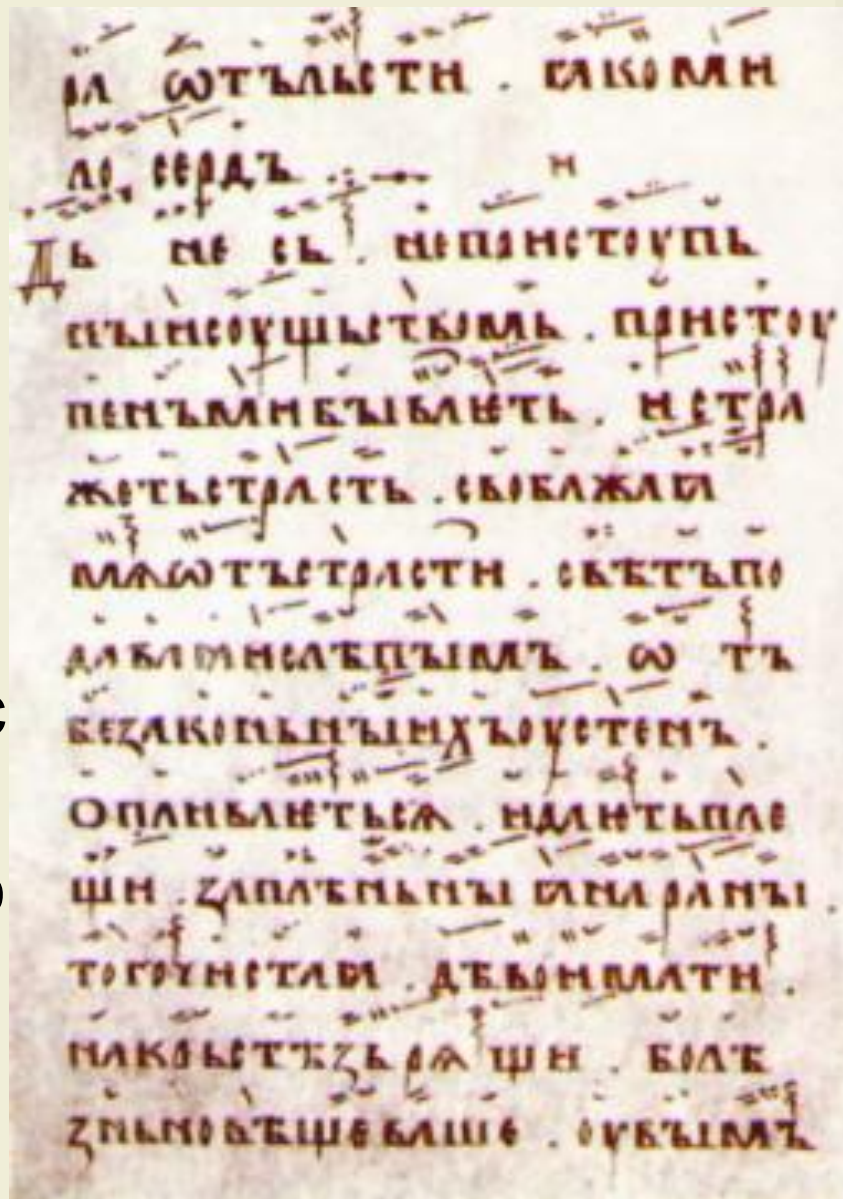 ра ѡтъльсти . ꙗкоми
ло сердъ и
Дь не сь . непристоупь
ныисоущьствомь . пристоу
пенъмибываѥть . и стра
жетьстрасть . свобажаꙗ
мѧѡтъстрасти . свѣтъпо
даваꙗислѣпымъ . ѡ тъ
беꙁаконьныихъоустенъ .
опливаѥтьсѧ . идаѥтьпле
щи . ꙁаплѣньныꙗнараны .
тогочистаꙗ . дѣвоимати .
накрьстѣꙁьрѧ щи . болѣ
ꙁньновѣщеваше . оувымъ